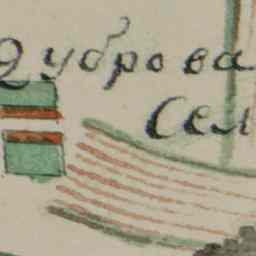 Дуброва
Сел